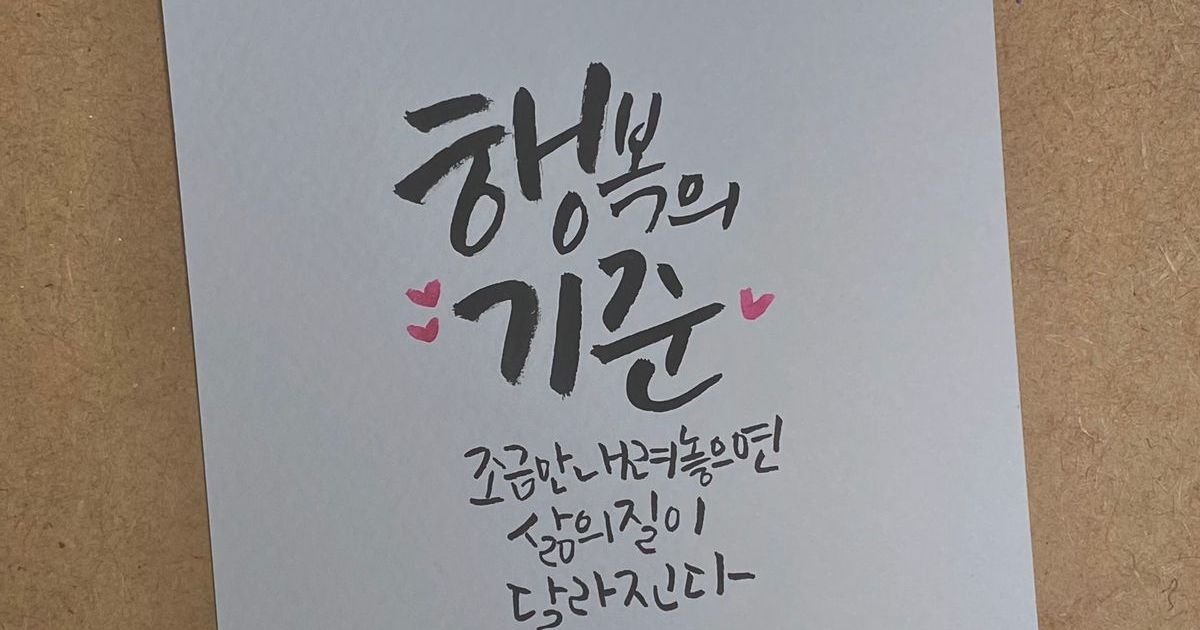 행복의
기준
조금만 내려놓으면
삶의 질이
달라진다